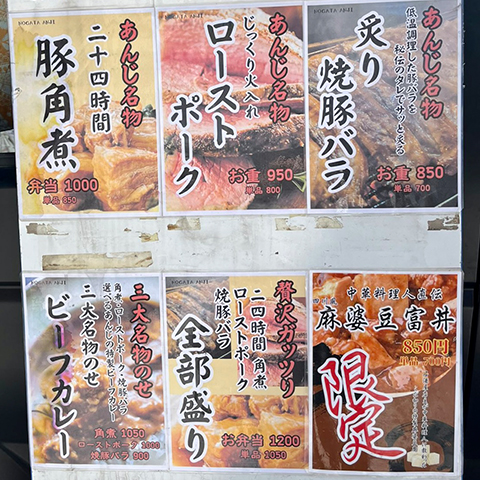 NOGATA ANJI
あんじ名物
二十四時間
豚角煮
弁当 1000
単品 850
NOGATA ANJI
あんじ名物
じっくり火入れ
ローストポーク
お重 950
単品 800
あんじ名物
低温調理した豚バラを
秘伝のタレでサッと炙る
炙り
焼豚バラ
お重 850
単品 700
NOGATA ANJI
三大名物のせ
角煮・ローストポーク・焼豚バラ
選べるあんじの特製ビーフカレー
三大名物のせ
ビーフカレー
角煮 1050
ローストポーク 1000
焼豚バラ 900
NOGATA ANJI
贅沢ガッツリ
二四時間 角煮
ローストポーク
焼豚バラ
全部盛り
お弁当 1200
単品 1050
中華料理人直伝
麻婆豆富丼
850円
単品 700円
限定